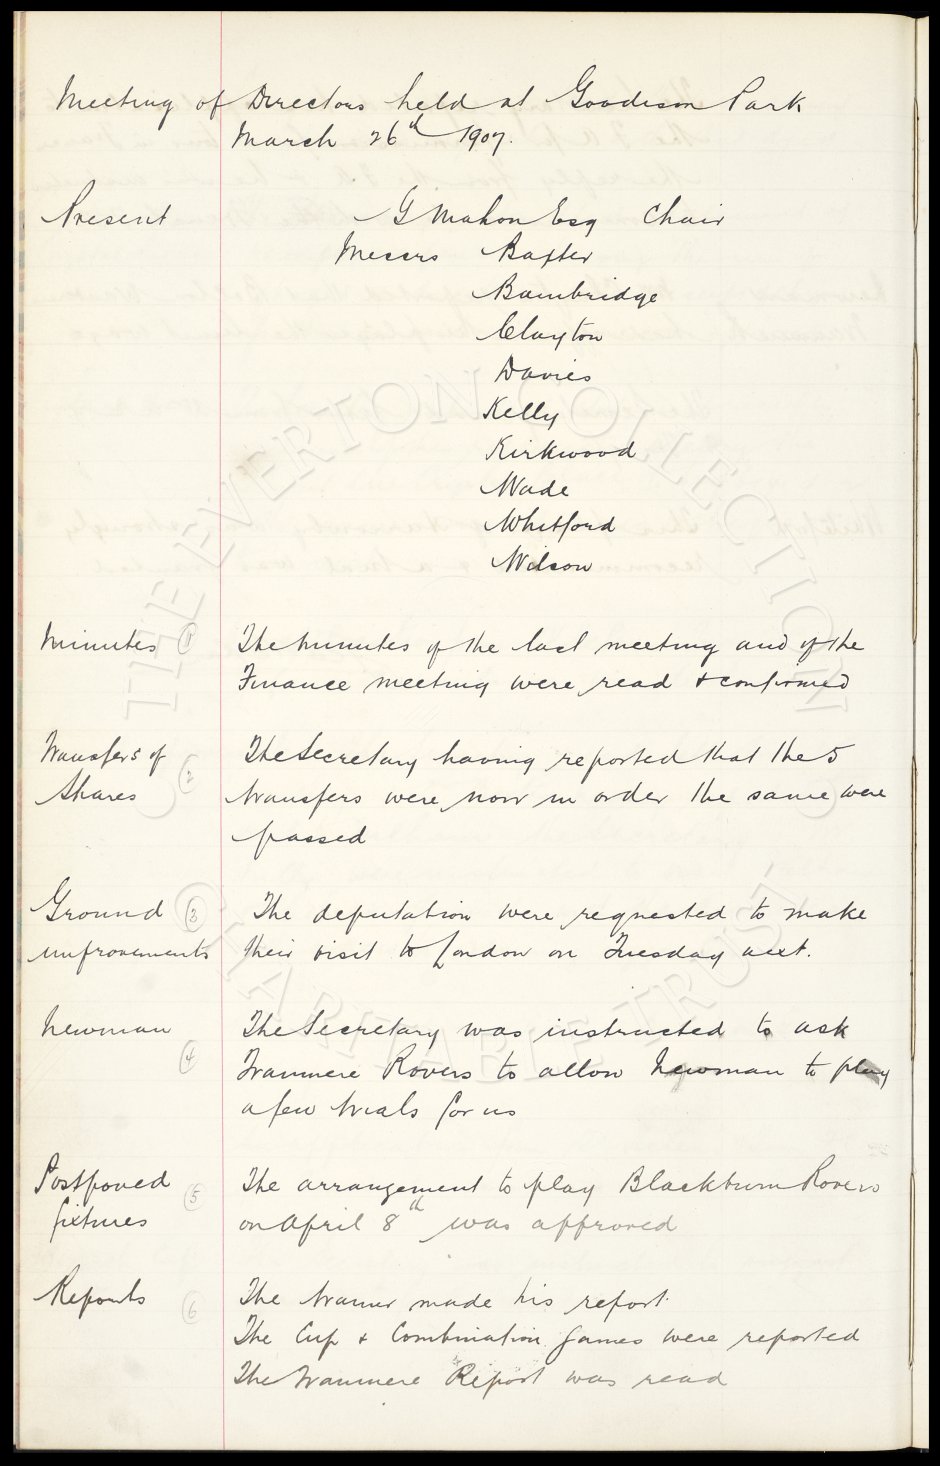 Meeting of Directors held at Goodison Park
March 26th 1907.
Present G Mahon Esq Chair
Messrs Baxter
Bainbridge
Clayton
Davies
Kelly
Kirkwood
Wade
Whitford
Wilson
Minutes 1 The minutes of the last meeting and of the
Finance meeting were read & confirmed
Transfers of 2 The Secretary having reported that the 5
Shares transfers were now in order the same were
passed
Ground 3 The deputation were requested to make
improvements their visit to London on Tuesday next.
Newman The Secretary was instructed to ask
4 Tranmere Rovers to allow Newman to play
a few trials for us
Postponed 5 The arrangement to play Blackburn Rovers
fixtures on April 8th was approved
Reports 6 The trainer made his report.
The Cup & Combination games were reported
The Tranmere Report was read
THE EVERTON COLLECTION CHARITABLE TRUST